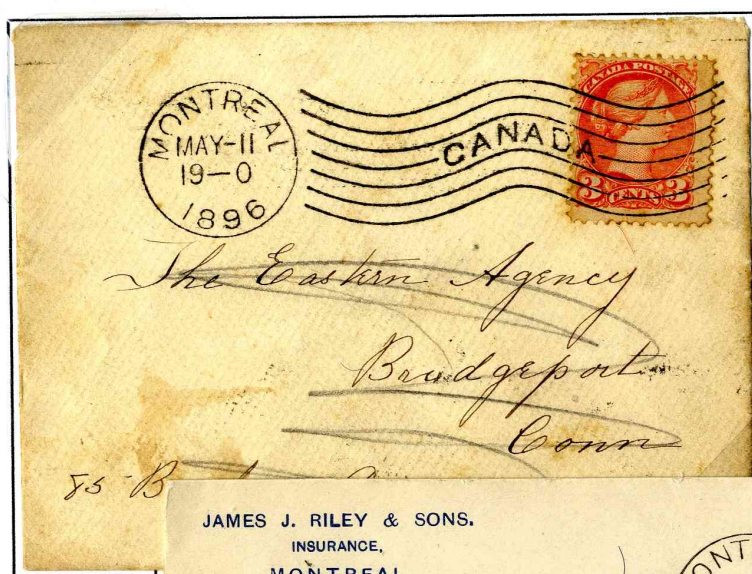 MONTREAL
MAY-11
19-0
1896
CANADA
CANADA POSTAGE
3 CENTS 3
The Eastern Agency
Bridgeport
Conn
85 B
JAMES J. RILEY & SONS.
INSURANCE,
MONTREAL
ONT